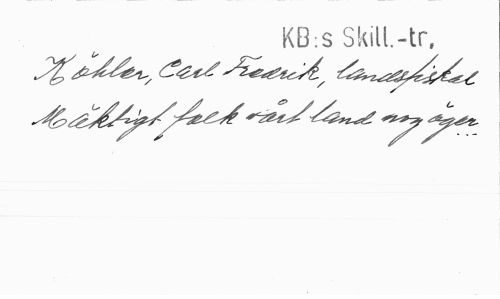 KB:s Skill.-tr.
Köhler, Carl Fredrik, landsfiskal
Mäktigt folk vårt land nog äger...